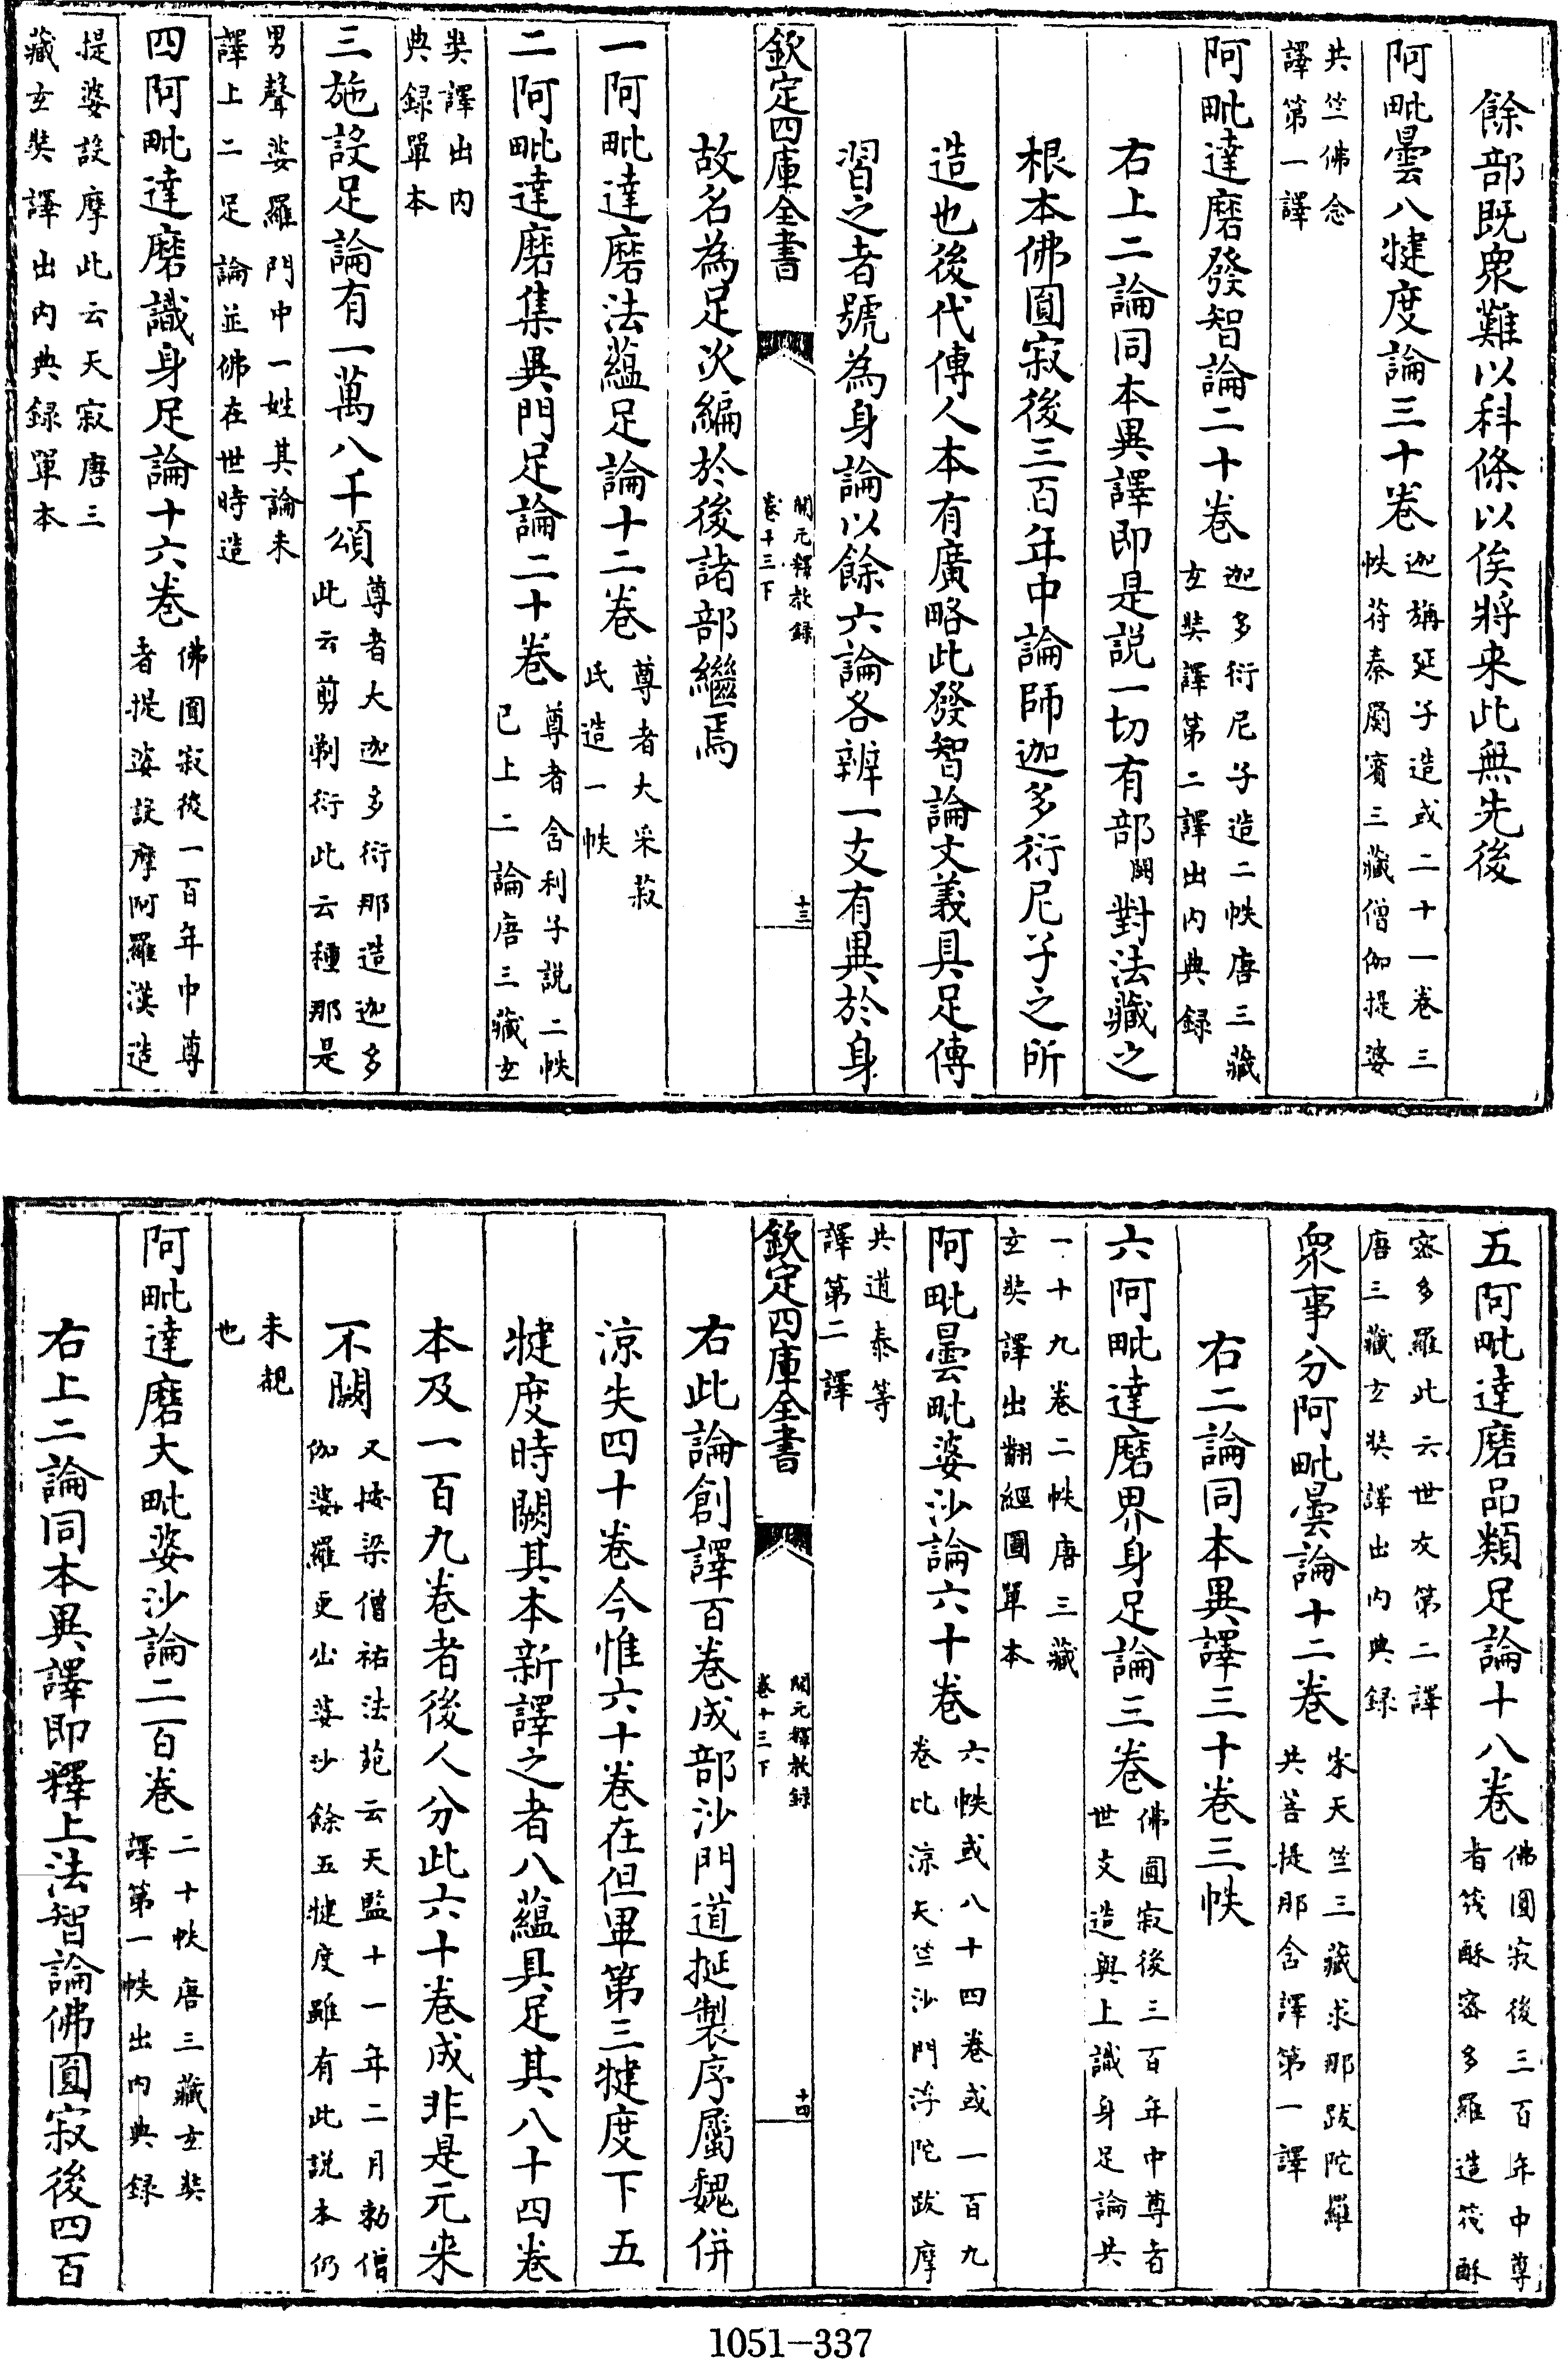 餘部既衆難以科條以俟將来此無先後
阿毗曇八犍度論三十卷
迦旃延子造或二十一卷三
帙苻秦罽賓三藏僧伽提婆
共竺佛念
譯第一譯
阿毗達磨發智論二十卷
迦多衍尼子造二帙唐三藏
玄奘譯第二譯出内典録
右上二論同本異譯即是説一切有部闕對法藏之
根本佛圓寂後三百年中論師迦多衍尼子之所
造也後代傳人本有廣略此發智論文義具足傳
習之者號為身論以餘六論各辨一支有異於身
欽定四庫全書
開元釋教録
卷十三下
十三
故名為足次編於後諸部繼焉
一阿毗達磨法藴足論十二卷
尊者大采菽
氏造一帙
二阿毗達磨集異門足論二十卷
尊者舍利子説二帙
已上二論唐三藏玄
奘譯出内
典録單本
三施設足論有一萬八千頌
尊者大迦多衍那造迦多
此云剪剃衍此云種那是
男聲婆羅門中一姓其論未
譯上二足論並佛在世時造
四阿毗達磨識身足論十六卷
佛圓寂後一百年中尊
者提婆設摩阿羅漢造
提婆設摩此云天寂唐三
藏玄奘譯出内典録單本
五阿毗達磨品類足論十八卷
佛圓寂後三百年中尊
者筏酥密多羅造筏酥
密多羅此云世友第二譯
唐三藏玄奘譯出内典録
衆事分阿毗曇論十二卷
宋天竺三藏求那跋陀羅
共菩提那舍譯第一譯
右二論同本異譯三十卷三帙
六阿毗達磨界身足論三卷
佛圓寂後三百年中尊者
世友造與上識身足論共
一十九卷二帙唐三藏
玄奘譯出翻經圖單本
阿毗曇毗婆沙論六十卷
六帙或八十四卷或一百九
卷北涼天竺沙門浮陀跋摩
共道泰等
譯第二譯
欽定四庫全書
開元釋教録
卷十三下
十四
右此論創譯百卷成部沙門道挻製序屬魏併
涼失四十卷今惟六十卷在但畢第三犍度下五
犍度時闕其本新譯之者八藴具足其八十四卷
本及一百九卷者後人分此六十卷成非是元来
不闕
又按梁僧祐法苑云天監十一年二月勅僧
伽婆羅更出婆沙餘五犍度雖有此説本仍
未覩
也
阿毗達磨大毗婆沙論二百卷
二十帙唐三藏玄奘
譯第一帙出内典録
右上二論同本異譯即釋上法智論佛圓寂後四百
1051-337